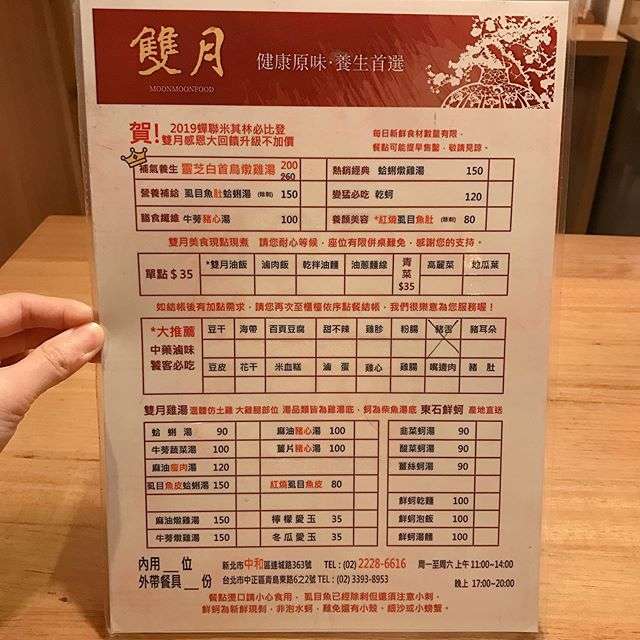 雙月
MOONMOONFOOD
健康原味·養生首選
賀! 2019蟬聯米其林必比登
雙月感恩大回饋升級不加價
每日新鮮食材數量有限，
餐點可能提早售罄，敬請見諒。
補氣養生 靈芝白首烏燉雞湯 200 260 熱銷經典 蛤蜊燉雞湯 150
營養補給 虱目魚肚蛤蜊湯 (除刺) 150 變猛必吃 乾蚵 120
膳食纖維 牛蒡豬心湯 100 養顏美容 *紅燒虱目魚肚 (除刺) 80
雙月美食現點現煮 請您耐心等候，座位有限併桌難免，感謝您的支持。
單點 $35 *雙月油飯 滷肉飯 乾拌油麵 油蔥麵線 青菜 $35 高麗菜 地瓜葉
如結帳後有加點需求，請您再次至櫃檯依序點餐結帳，我們很樂意為您服務喔!
*大推薦 豆干 海帶 百頁豆腐 甜不辣 雞胗 粉腸 豬舌 豬耳朵
中藥滷味
饕客必吃 豆皮 花干 米血糕 滷蛋 雞心 雞腸 嘴邊肉 豬肚
雙月雞湯 溫體仿土雞 大雞腿部位 湯品類皆為雞湯底，蚵為柴魚湯底 東石鮮蚵 產地直送
蛤蜊湯 90 麻油豬心湯 100 韭菜蚵湯 90
牛蒡蔬菜湯 100 薑片豬心湯 100 酸菜蚵湯 90
麻油瘦肉湯 120 薑絲蚵湯 90
虱目魚皮蛤蜊湯 150 紅燒虱目魚皮 80
鮮蚵乾麵 100
麻油燉雞湯 150 檸檬愛玉 35 鮮蚵泡飯 100
牛蒡燉雞湯 150 冬瓜愛玉 35 鮮蚵湯麵 100
內用__位 新北市中和區連城路363號 TEL : (02) 2228-6616 周一至周六 上午 11:00~14:00
外帶餐具__份 台北市中正區青島東路6之22號 TEL : (02) 3393-8953 晚上 17:00~20:00
餐點燙口請小心食用， 虱目魚已經除刺但還須注意小刺，
鮮蚵為新鮮現剝，非泡水蚵，難免還有小殼，細沙或小螃蟹。